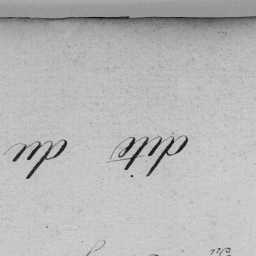 dite du